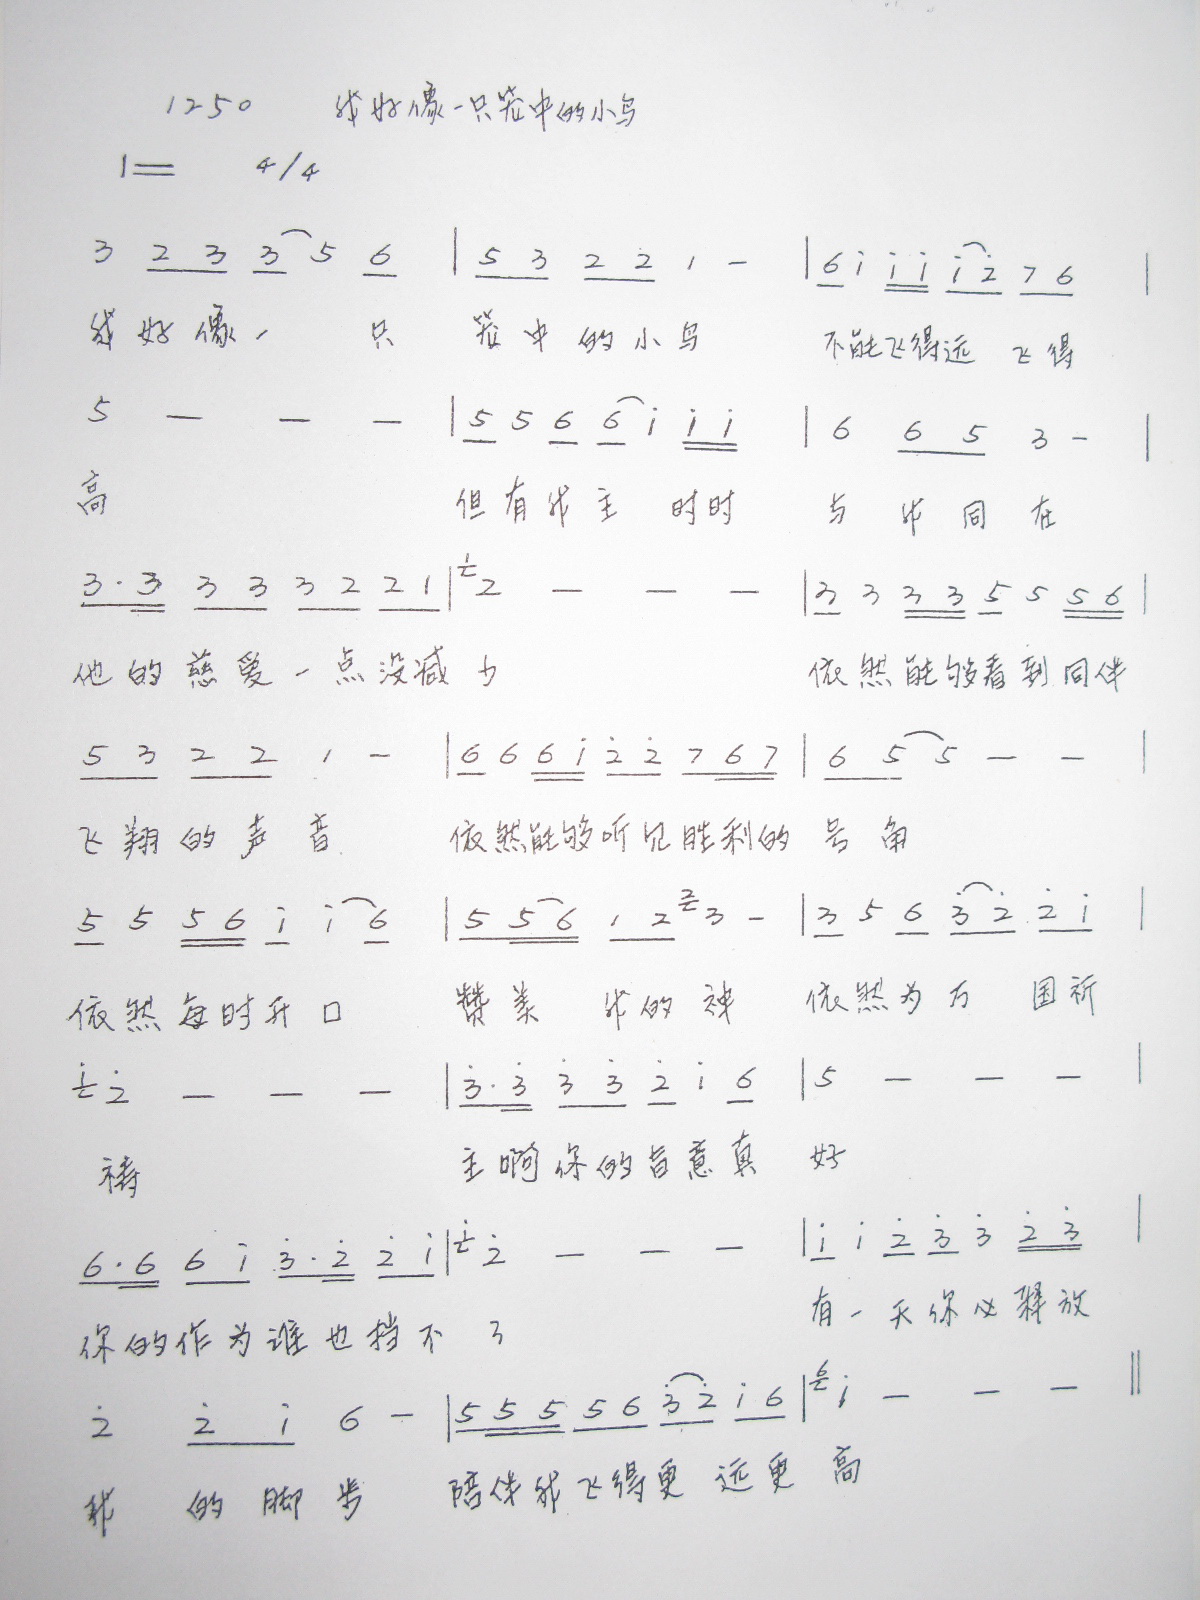 1250 我好像一只笼中的小鸟
1= 4/4
3 2 3 3 5 6 | 5 3 2 2 1 - | 6 i i i i 2̇ 7 6 |
我好像一 只 笼中的小鸟 不能飞得远 飞得
5 - - - | 5 5 6 6 i i i | 6 6 5 3 - |
高 但有我主 时时 与我同在
3·3 3 3 3 2 2 1 | 1 2 - - - | 3 3 3 3 5 5 5 6 |
他的慈爱一点没减少 依然能够看到同伴
5 3 2 2 1 - | 6 6 6 i 2̇ 2̇ 7 6 7 | 6 5 5 - - |
飞翔的声音 依然能够听见胜利的号角
5 5 5 6 i i 6 | 5 5 6 1 2 2 3 - | 3 5 6 3̇ 2̇ 2̇ i |
依然每时开口 赞美 我的神 依然为万 国祈
i 2̇ - - - | 3̇·3̇ 3̇ 3̇ 2̇ i 6 | 5 - - - |
祷 主啊你的旨意真 好
6·6 6 i 3̇·2̇ 2̇ i | i 2̇ - - - | i i 2̇ 3̇ 3̇ 2̇ 3̇ |
你的作为谁也挡不了 有一天你必释放
2̇ 2̇ i 6 - | 5 5 5 5 6 3̇ 2̇ i 6 | 6 i - - - ‖
我 的脚步 陪伴我飞得更 远更高